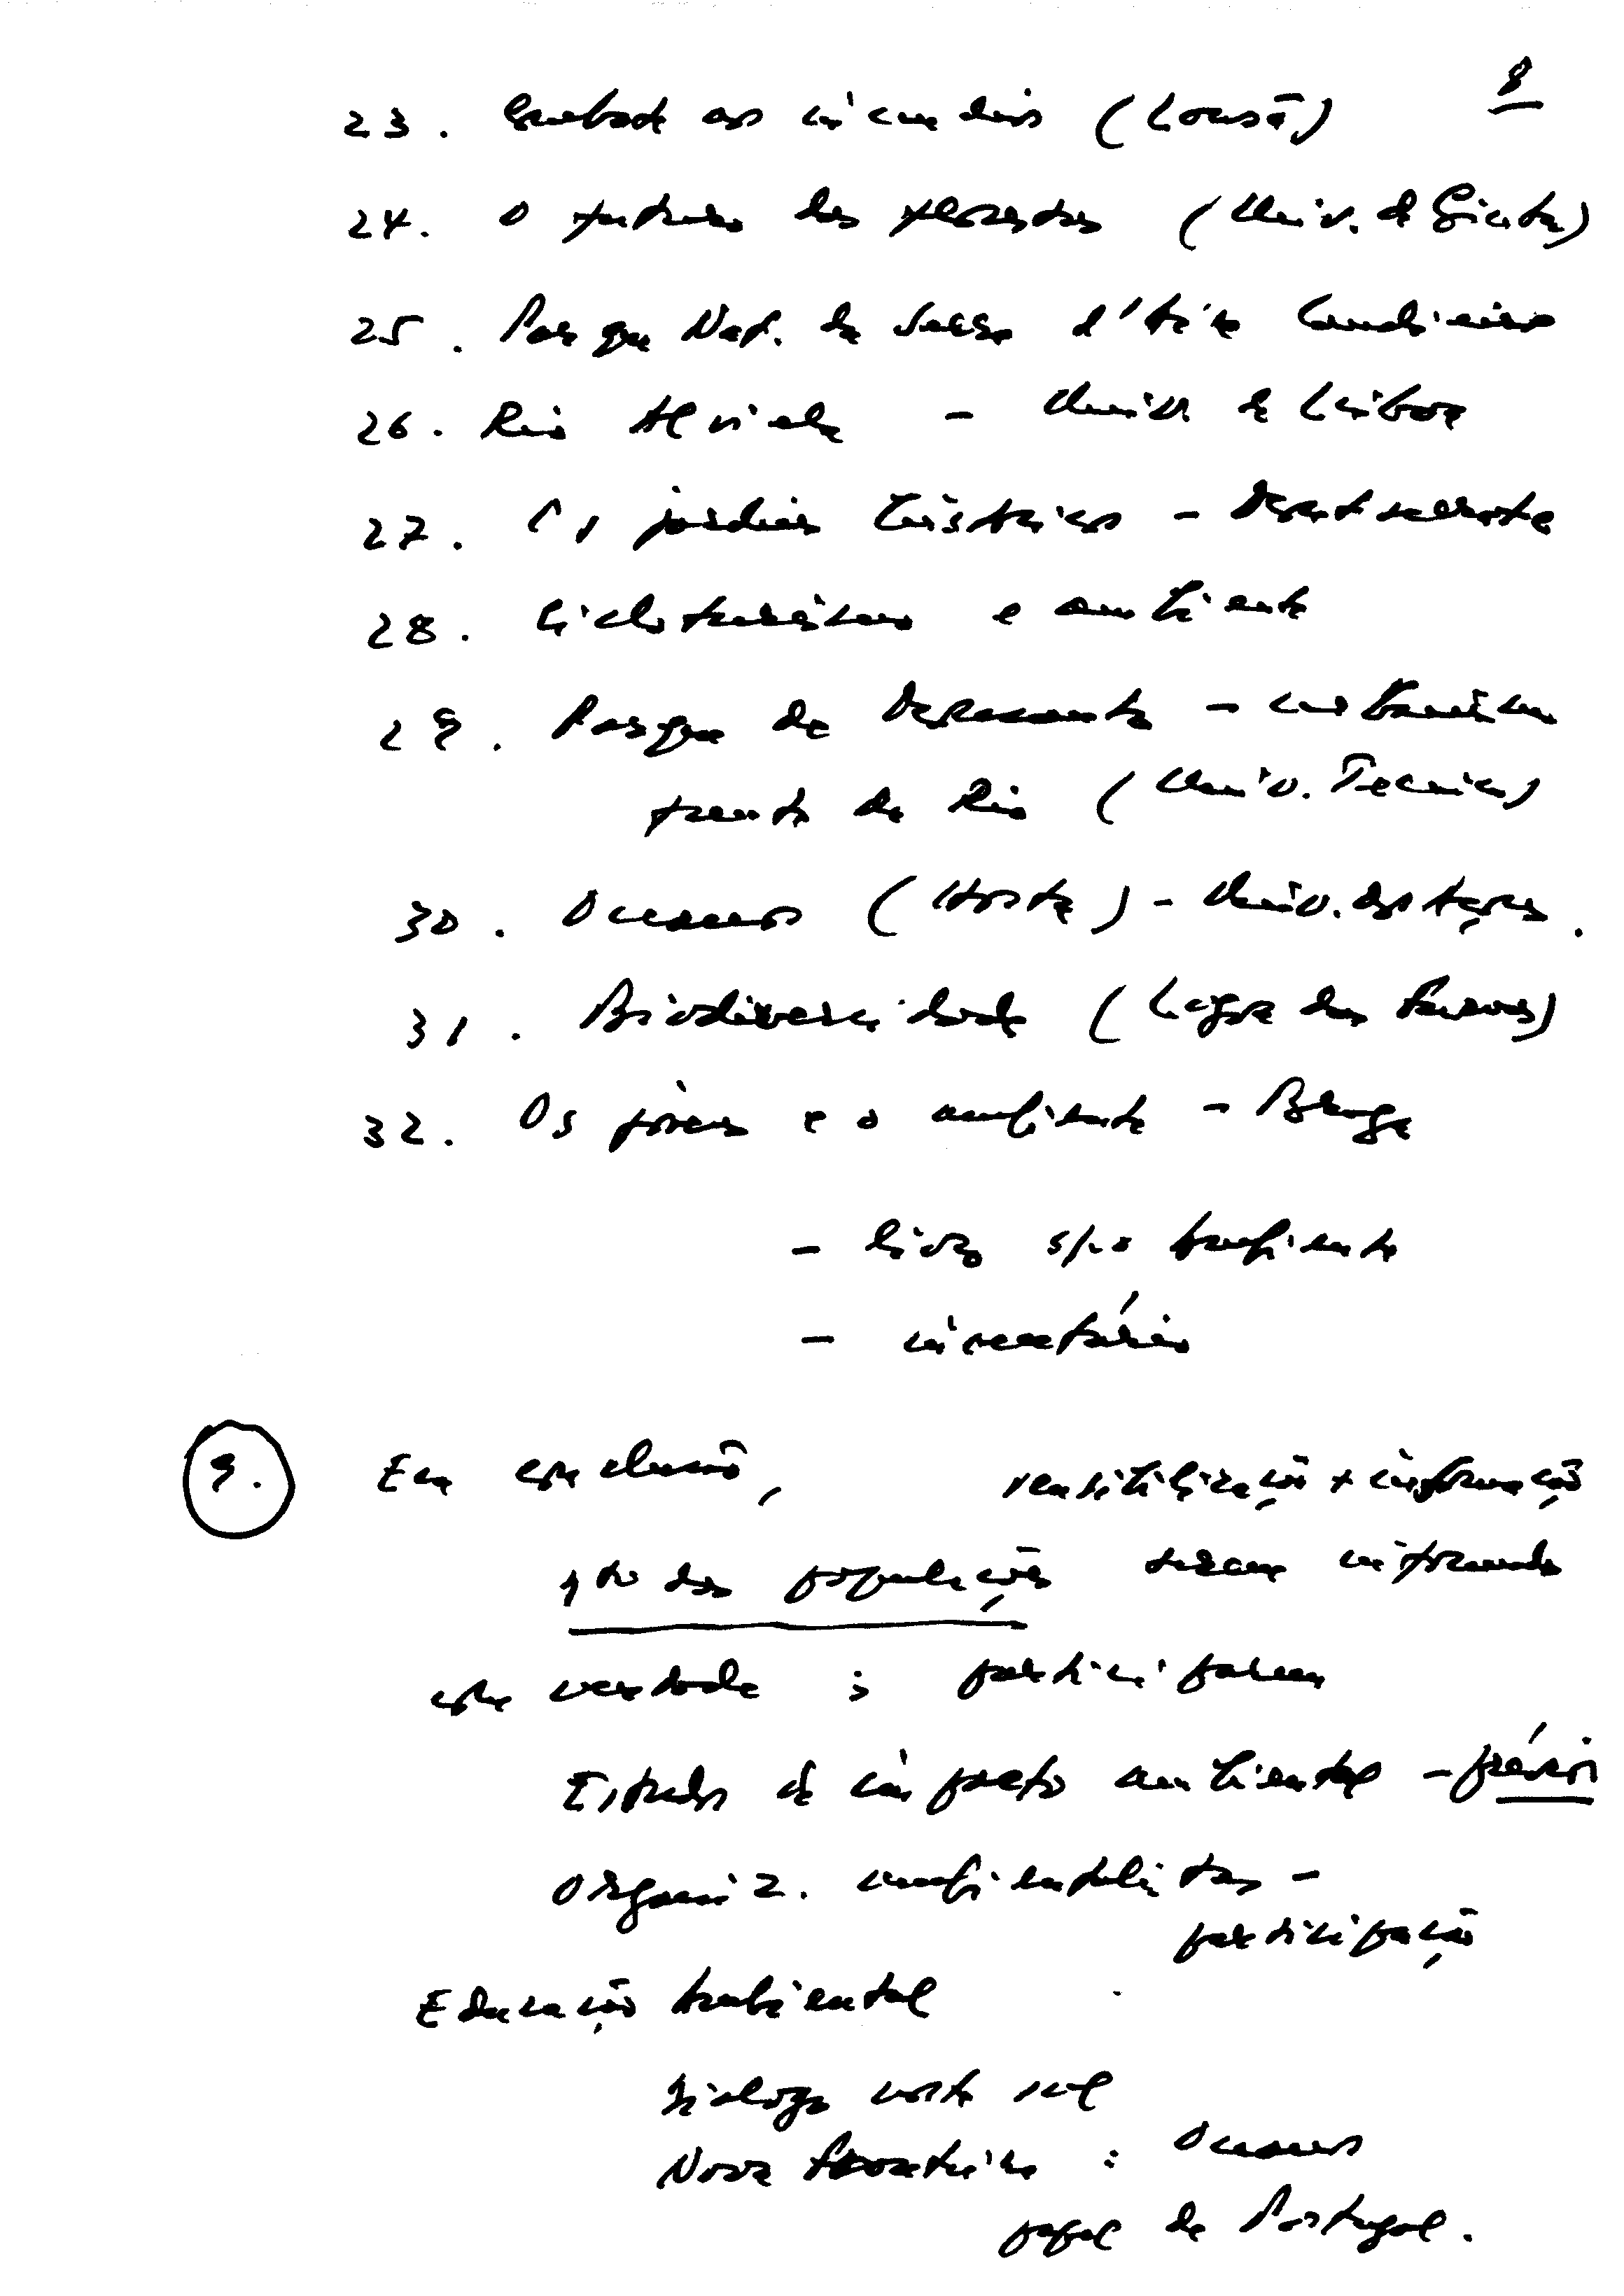 8
23. Combate aos incêndios (Lousã)
24. O futuro das florestas (Univ. de Évora)
25. Parque Nat. da Serra d'Aire Candeeiros
26. Rio Alviela - Univ. de Lisboa
27. Os jardins históricos -
28. Cicloturismo e ambiente
29. Parque da - urbanismo
frente de Rio (Univ. Tecnica)
30. Oceanos (Horta) - Univ. dos Açores.
31. Biodiversidade (Lagoa das Furnas)
32. Os jovens e o ambiente - Braga
- livro s/ o Ambiente
- inventário
9. Em conclusão, sensibilização + informação
das populações serem informadas
com verdade ; participarem
Estudos de impacto ambiental - prévios
Organiz. ambientalistas -
participação
Educação Ambiental
Diálogo norte sul
Nova fronteira : Oceanos
papel de Portugal.